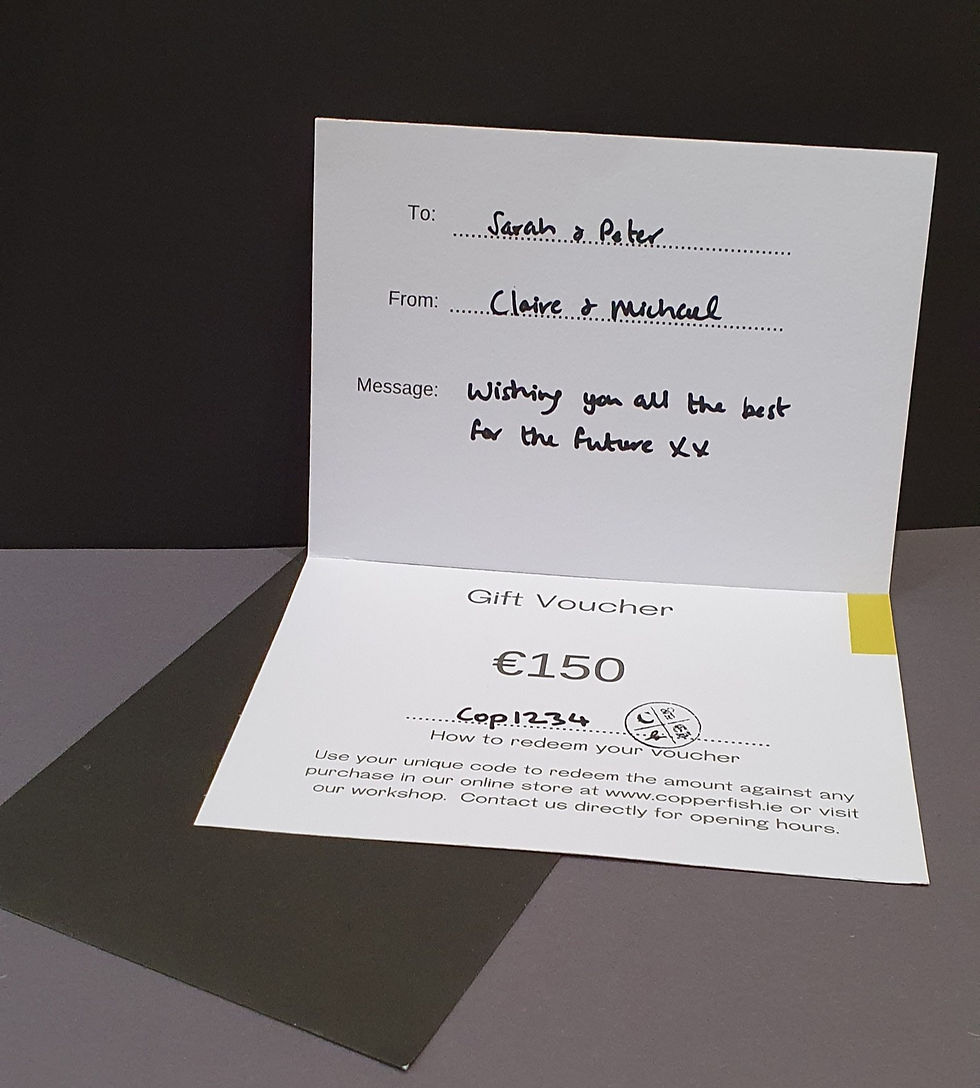 To: Sarah & Peter
From: Claire & Michael
Message: Wishing you all the best
for the future xx
Gift Voucher
€150
Cop1234
How to redeem your voucher
Use your unique code to redeem the amount against any
purchase in our online store at www.copperfish.ie or visit
our workshop. Contact us directly for opening hours.